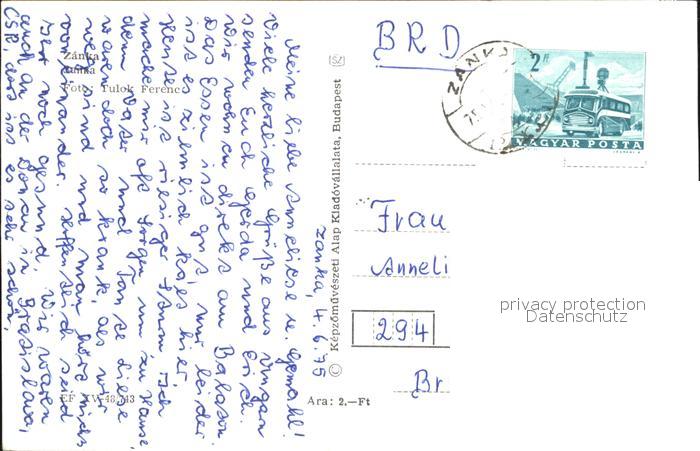 Zánka, 4.6.75
Meine liebe Anneliese u. Gemahl!
Viele herzliche Grüße aus Ungarn
senden Euch Gerda und Erich.
Wir wohnen direkt am Balaton.
Das Essen ist gut, nur leider
ist es ziemlich kalt hier.
Heute ist riesiger Sturm. Ich
mache mir oft Sorgen um zu Hause,
denn Vater und Tante Liese
waren doch so krank, als wir
weg sind und man hört nichts
voneinander. Hoffentlich seid
Ihr noch gesund. Wir waren
auch an der Donau in Bratislava,
ČSR, dort ist es sehr schön,
Zánka
Foto: Tulok Ferenc
EF XV-48,743
© Képzőművészeti Alap Kiadóvállalata, Budapest
Ara: 2.—Ft
BRD
ZÁNKA
2 Ft
MAGYAR POSTA
Frau
Anneli
294
Br
privacy protection
Datenschutz